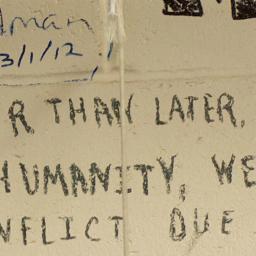 dman
3/1/12
R THAN LATER.
HUMANITY, WE
NFLICT DUE